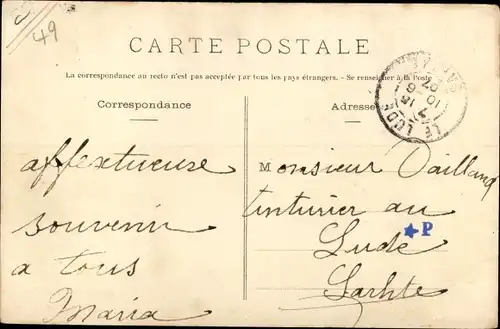 49
CARTE POSTALE
La correspondance au recto n'est pas acceptée par tous les pays étrangers. – Se renseigner à la Poste
Correspondance
Adresse
LE LUDE
affextueuse
souvenir
a tous
Maria
Monsieur Vailland
tinturier au
Lude
Sarhte
P